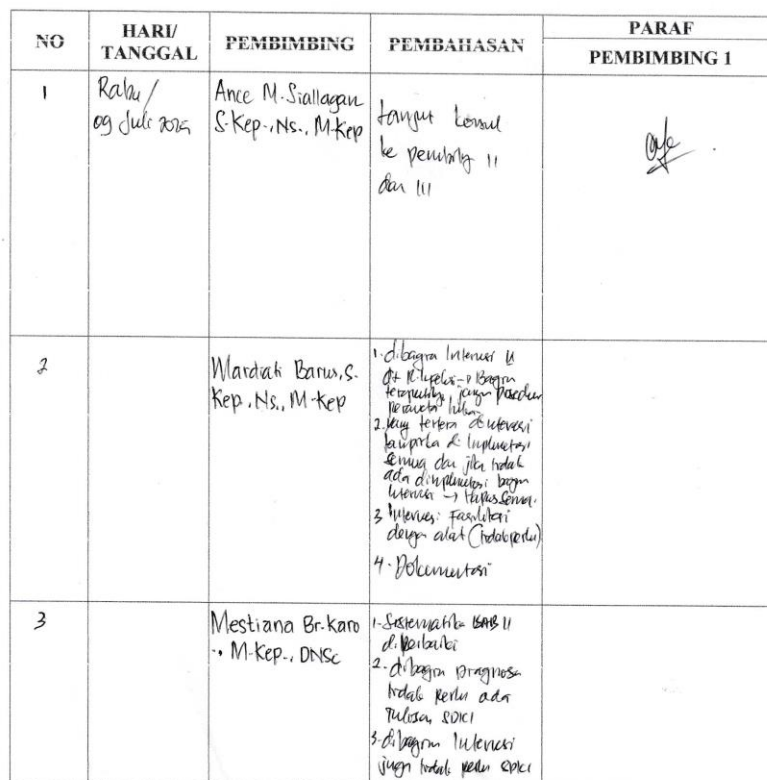 NO
HARI/
TANGGAL
PEMBIMBING
PEMBAHASAN
PARAF
PEMBIMBING 1
1
Rabu/
09 Juli
Ance M. Siallagan
S.Kep., Ns., M.Kep
Lanjut konsul
ke II
dan III
2
Wardiati Barus, S.
Kep., Ns., M.Kep
1. dibagian Intervensi
Bagian
jangan
perawatan
2. yang tertera di intervensi
di Implementasi
semua dan jika tidak
ada bagian
Intervensi →
3 Intervensi Fasilitasi
dengan alat (tidak perlu)
4. Dokumentasi
3
Mestiana Br. Karo
., M.Kep., DNSc
1. Sistematika BAB II
diperbaiki
2. dibagian
tidak perlu ada
Tulisan SDKI
3. dibagian Intervensi
juga tidak perlu